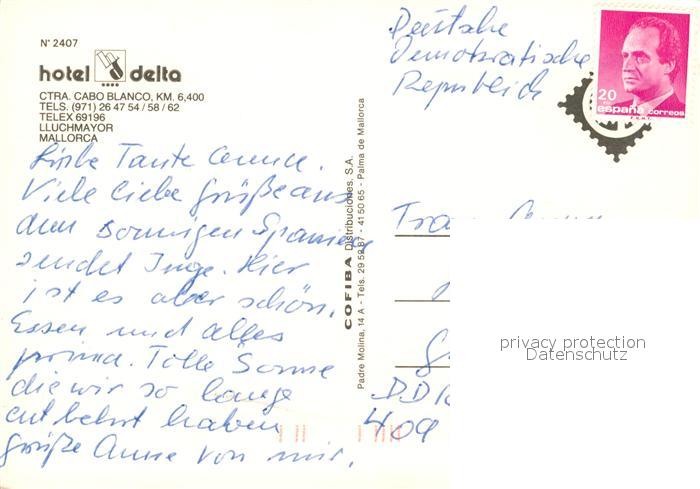 N° 2407
hotel delta
CTRA. CABO BLANCO, KM. 6,400
TELS. (971) 26 47 54 / 58 / 62
TELEX 69196
LLUCHMAYOR
MALLORCA
Liebe Tante
Viele liebe Grüße aus
dem sonnigen Spanien
sendet Inge. Hier
ist es aber schön.
Essen und alles
prima. Tolle Sonne
die wir so lange
entbehrt haben
Grüße Anne von mir.
COFIBA Distribuciones, S.A.
Padre Molina, 14 A - Tels. 29 59 87 - 41 50 65 - Palma de Mallorca
Deutsche
Demokratische
Republick
20
españa correos
F.N.M.T.
DDR
409
privacy protection
Datenschutz